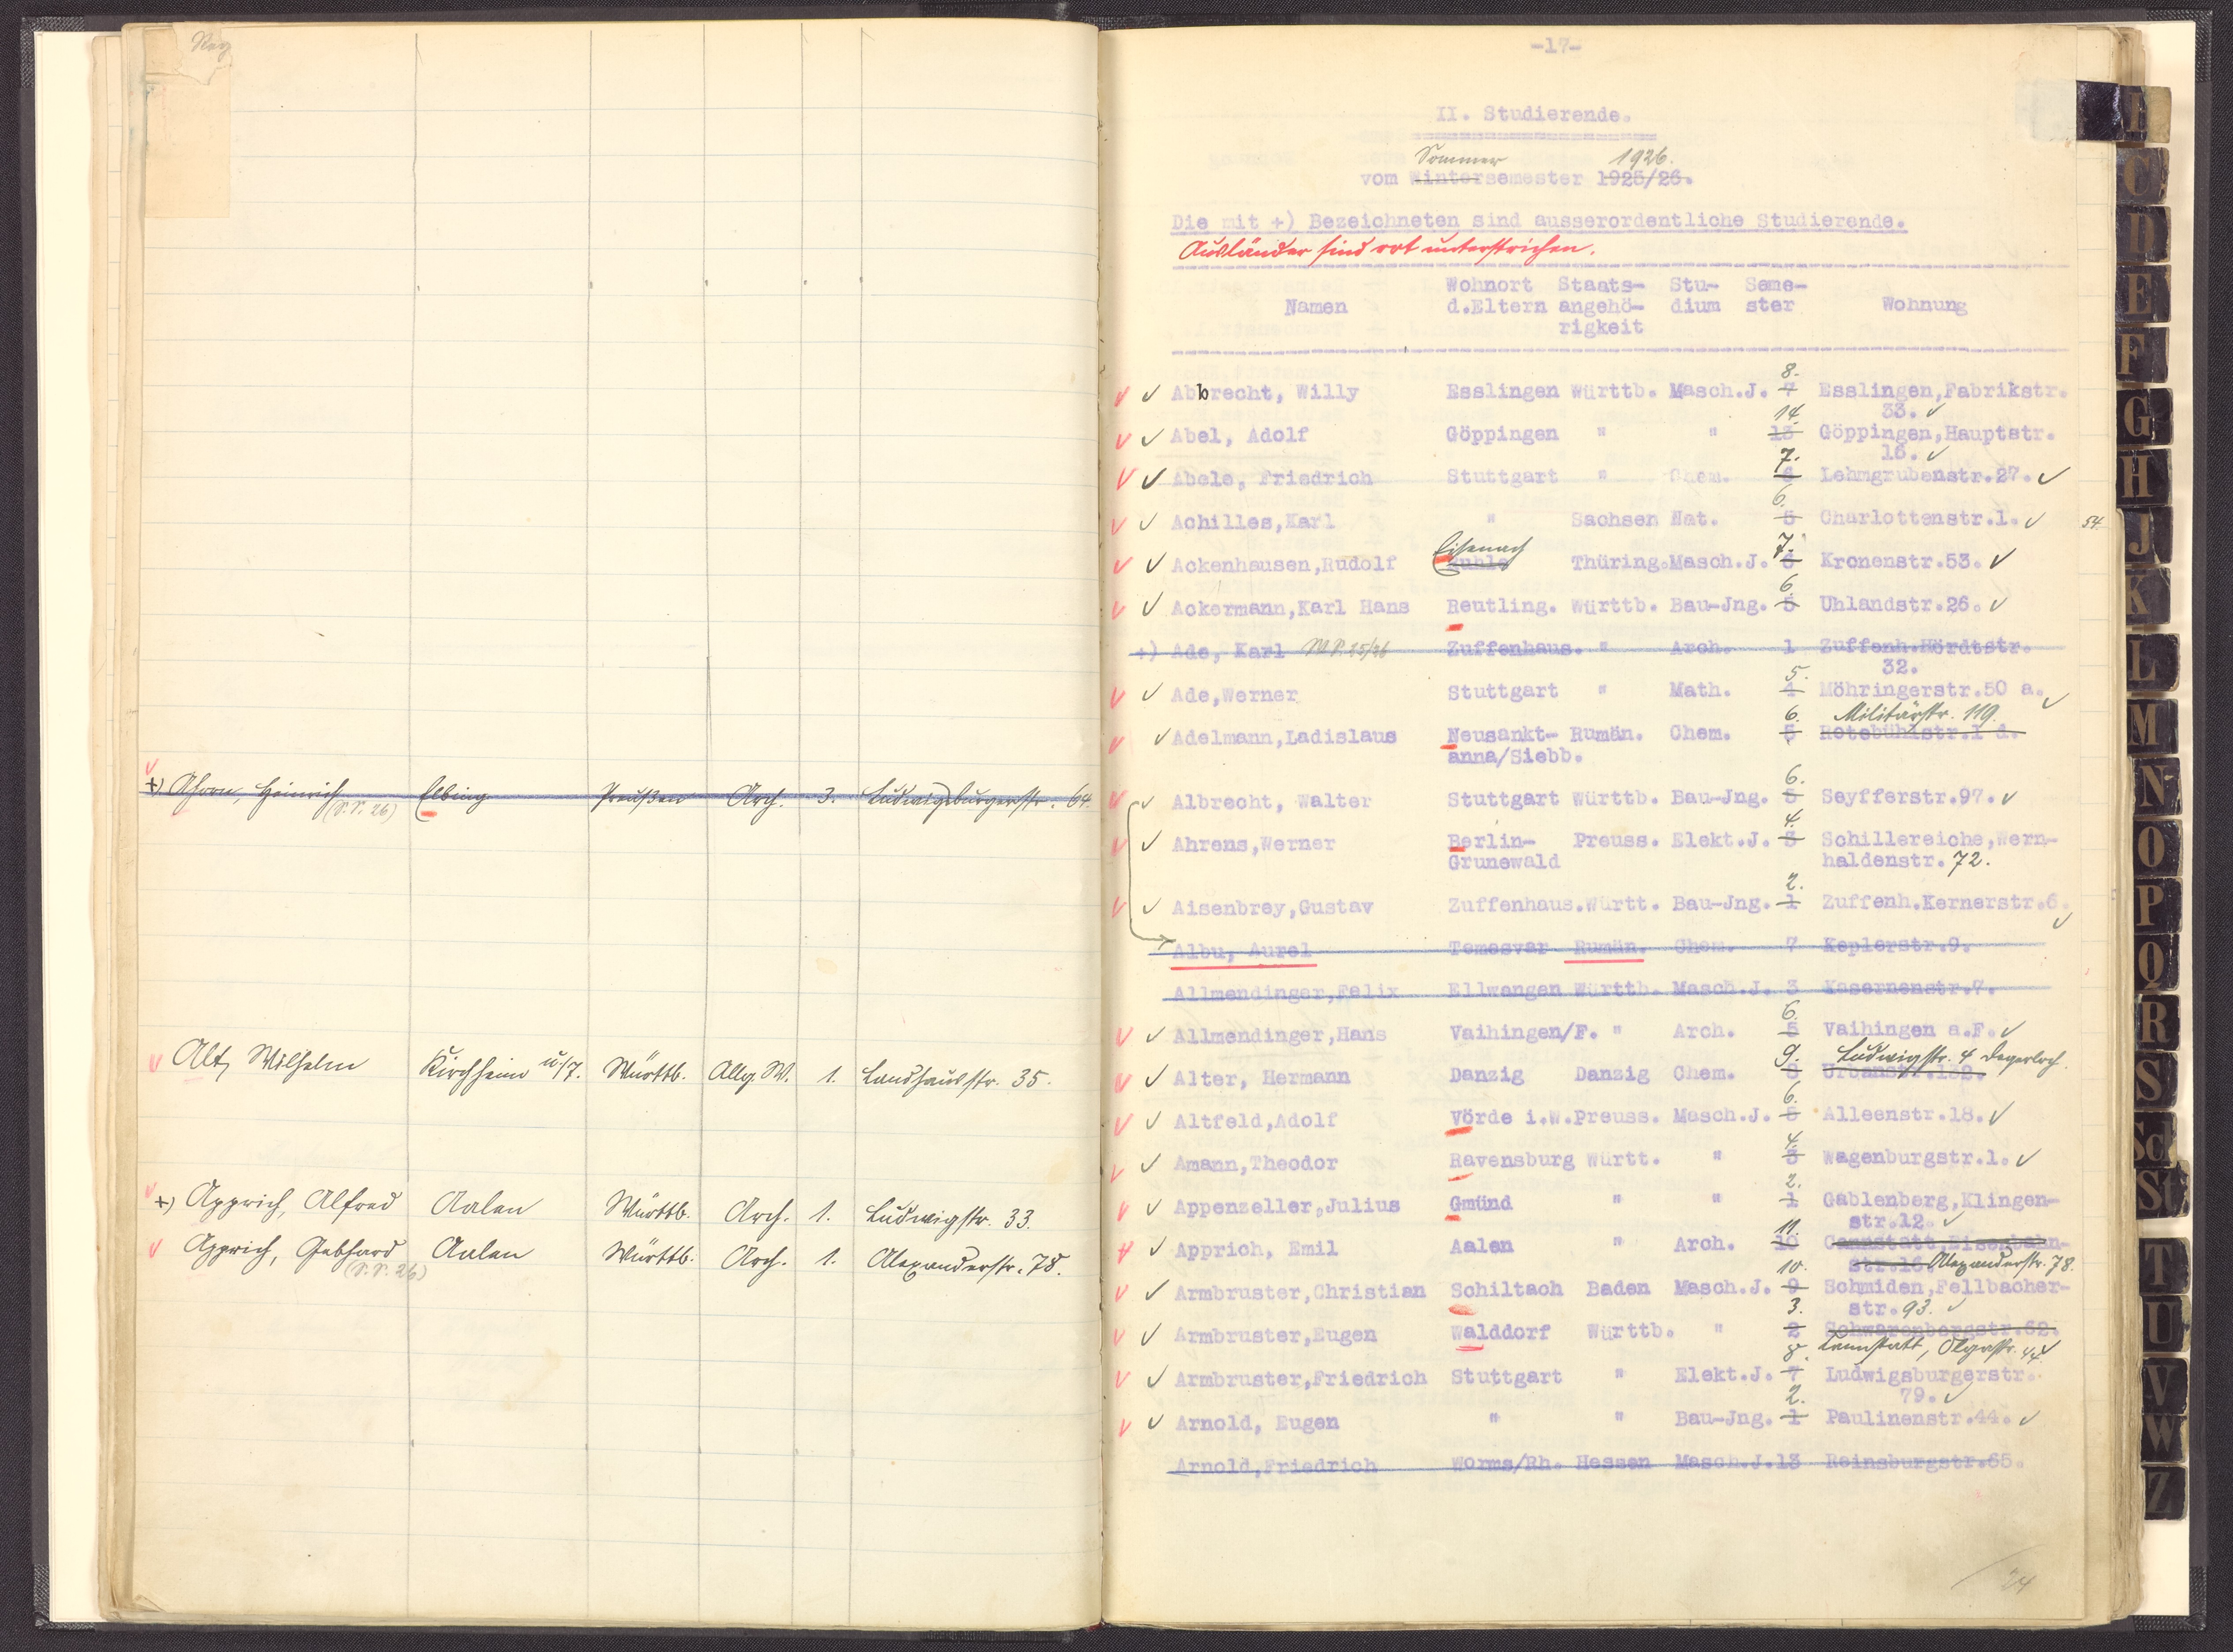 +) Ahorn, Heinrich Elbing Preußen Arch. 3. Ludwigsburgerstr. 64.
(S.S. 26)
Alt, Wilhelm Kirchheim u/T. Württb. Allg.W. 1. Landhausstr. 35.
+) Apprich, Alfred Aalen Württb. Arch. 1. Ludwigstr. 33.
Apprich, Gebhard Aalen Württb. Arch. 1. Alexanderstr. 78.
(S.S. 26)
-17-
II. Studierende.
Sommer 1926.
vom Wintersemester 1925/26.
Die mit +) Bezeichneten sind ausserordentliche Studierende.
Ausländer sind rot unterstrichen.
Wohnort Staats- Stu- Seme-
Namen d.Eltern angehö- dium ster Wohnung
rigkeit
8.
Abbrecht, Willy Esslingen Württb. Masch.J. 7 Esslingen,Fabrikstr.
14. 33.
Abel, Adolf Göppingen " " 13 Göppingen,Hauptstr.
7. 16.
Abele, Friedrich Stuttgart " Chem. 6 Lehmgrubenstr.27.
6.
Achilles,Karl " Sachsen Nat. 5 Charlottenstr.1. 54.
Eisenach 7.
Ackenhausen,Rudolf Ruhla Thüring.Masch.J. 6 Kronenstr.53.
6.
Ackermann,Karl Hans Reutling. Württb. Bau-Jng. 5 Uhlandstr.26.
+) Ade, Karl W.S. 25/26 Zuffenhaus. " Arch. 1 Zuffenh.Hördtstr.
5. 32.
Ade,Werner Stuttgart " Math. 4 Möhringerstr.50 a.
6. Militärstr. 119.
Adelmann,Ladislaus Neusankt- Rumän. Chem. 5 Rotebühlstr.1 d.
anna/Siebb.
6.
Albrecht, Walter Stuttgart Württb. Bau-Jng. 5 Seyfferstr.97.
4.
Ahrens,Werner Berlin- Preuss. Elekt.J. 3 Schillereiche,Wern-
Grunewald haldenstr. 72.
2.
Aisenbrey,Gustav Zuffenhaus.Württ. Bau-Jng. 1 Zuffenh.Kernerstr.6.
Albu, Aurel Temesvar Rumän. Chem. 7 Keplerstr.9.
Allmendinger,Felix Ellwangen Württb. Masch.J. 3 Kasernenstr.7.
6.
Allmendinger,Hans Vaihingen/F. " Arch. 5 Vaihingen a.F.
9. Ludwigstr. 4 Degerloch.
Alter, Hermann Danzig Danzig Chem. 8 Urbanstr.132.
6.
Altfeld,Adolf Vörde i.W.Preuss. Masch.J. 5 Alleenstr.18.
4.
Amann,Theodor Ravensburg Württ. " 3 Wagenburgstr.1.
2.
Appenzeller,Julius Gmünd " " 1 Gablenberg,Klingen-
11. str.12.
Apprich, Emil Aalen " Arch. 10 Cannstatt,Eisenbahn-
10. str.16. Alexanderstr. 78.
Armbruster,Christian Schiltach Baden Masch.J. 9 Schmiden,Fellbacher-
3. str. 93.
Armbruster,Eugen Walddorf Württb. " 2 Schwarenbergstr.62.
8. Cannstatt, Olgastr. 44
Armbruster,Friedrich Stuttgart " Elekt.J. 7 Ludwigsburgerstr.
2. 79.
Arnold, Eugen " " Bau-Jng. 1 Paulinenstr.44.
Arnold,Friedrich Worms/Rh. Hessen Masch.J.13 Reinsburgstr.65.
24
C
D
E
F
G
H
J
K
L
M
N
O
P
Q
R
S
Sch
St
T
U
V
W
Z